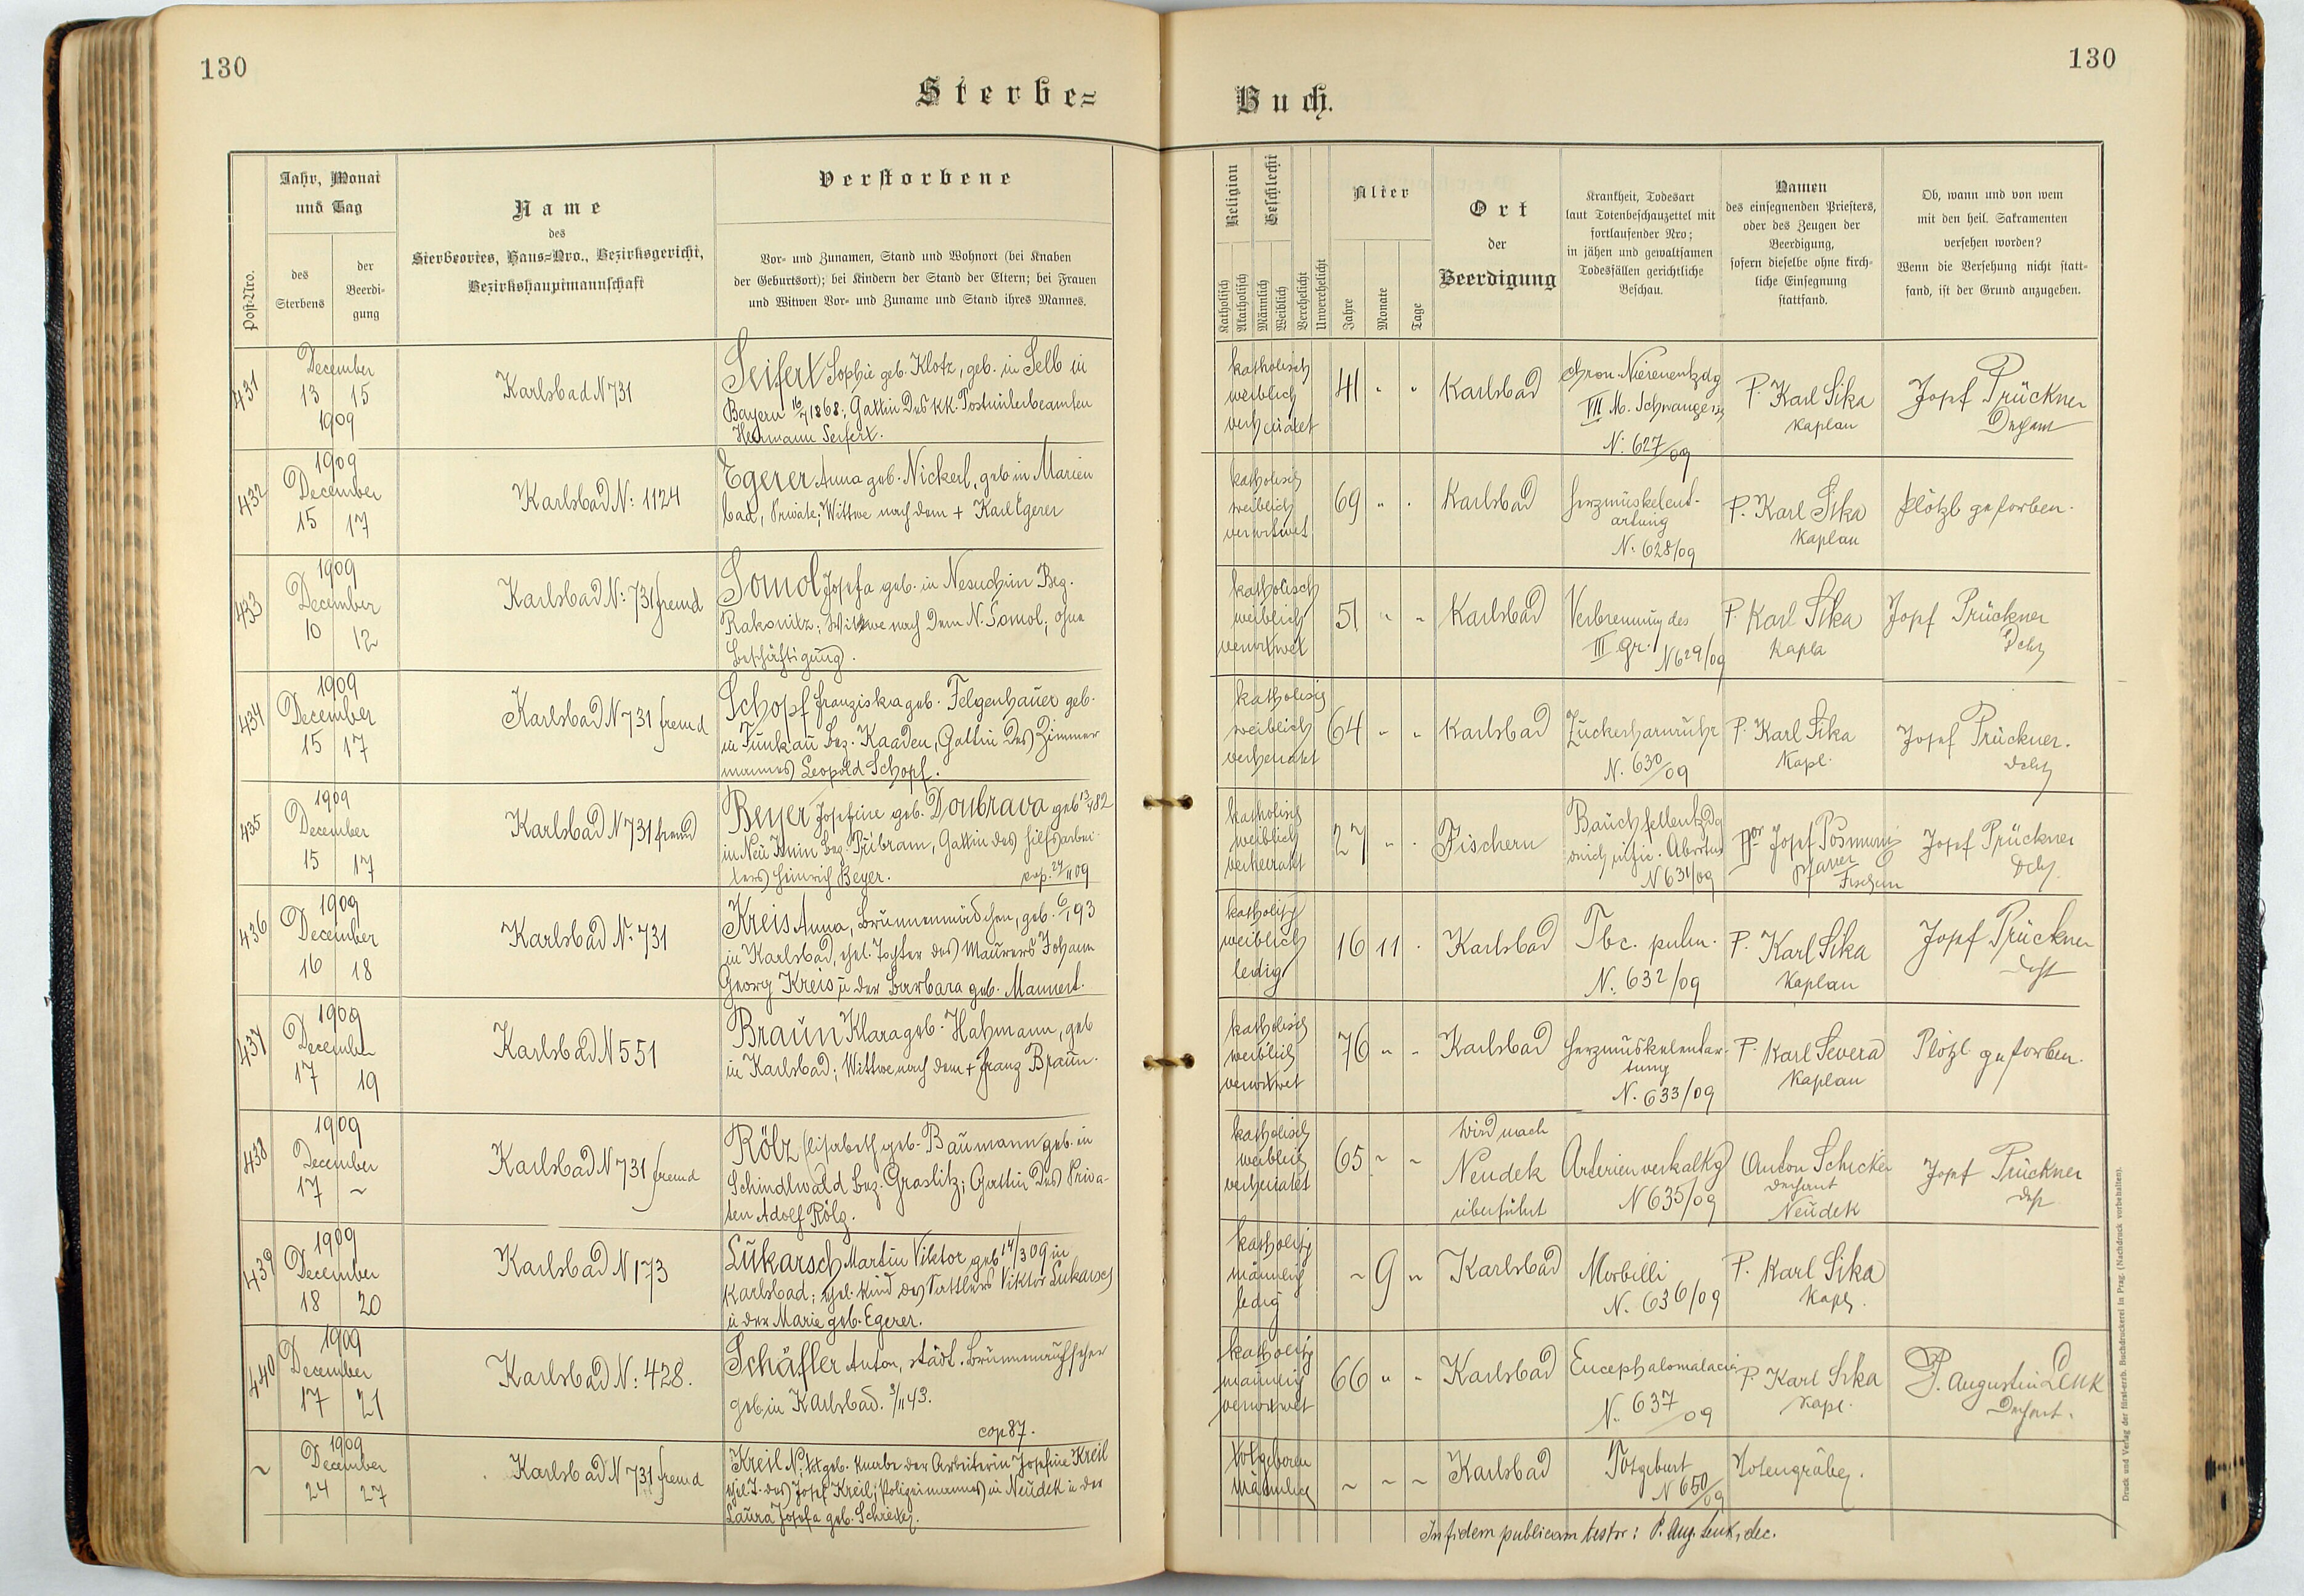 130
130
Sterbe=
Buch.
Post-Nro.
Jahr, Monat
und Tag
des
Sterbens
der
Beerdi-
gung
Name
des
Sterbeortes, Haus=Nro., Bezirksgericht,
Bezirkshauptmannschaft
Verstorbene
Vor- und Zunamen, Stand und Wohnort (bei Knaben
der Geburtsort); bei Kindern der Stand der Eltern; bei Frauen
und Witwen Vor- und Zuname und Stand ihres Mannes.
Religion
Katholisch
Akatholisch
Geschlecht
Männlich
Weiblich
Verehelicht
Unverehelicht
Alter
Jahre
Monate
Tage
Ort
der
Beerdigung
Krankheit, Todesart
laut Totenbeschauzettel mit
fortlaufender Nro;
in jähen und gewaltsamen
Todesfällen gerichtliche
Beschau.
Namen
des einsegnenden Priesters,
oder des Zeugen der
Beerdigung,
sofern dieselbe ohne kirch-
liche Einsegnung
stattfand.
Ob, wann und von wem
mit den heil. Sakramenten
versehen worden?
Wenn die Versehung nicht statt-
fand, ist der Grund anzugeben.
431
December
13 15
1909
Karlsbad N 731
Seifert Sophie geb. Klotz, geb. in Selb in
Bayern 16/7 1868; Gattin des kk. Postunterbeamten
Hermann Seifert.
katholisch
weiblich
verheiratet
41 " "
Karlsbad
chron. Nierenentzdg
VII M. Schwangersch
N: 627/09
P. Karl Sika
Kaplan
Josef Prückner
Dechant
432
1909
December
15 17
Karlsbad N: 1124
Egerer Anna geb. Nickerl, geb in Marien
bad, Private; Wittwe nach dem + Karl Egerer
katholisch
weiblich
verwitwet
69 " "
Karlsbad
Herzmuskelent-
artung
N: 628/09
P. Karl Sika
Kaplan
Plötzl gestorben.
433
1909
December
10 12
Karlsbad N: 731 fremd
Somol Josefa geb. in Nesuchin Bez.
Rakonitz; Wittwe nach dem N. Somol; ohne
Beschäftigung.
katholisch
weiblich
verwitwet
51 " "
Karlsbad
Verbrennung des
III gr. N 629/09
P. Karl Sika
Kapla
Josef Prückner
Dcht
434
1909
December
15 17
Karlsbad N 731 fremd
Schopf Franziska geb. Felgenhauer geb.
in Funkau bez. Kaaden, Gattin des Zimmer
mannes Leopold Schopf.
katholisch
weiblich
verheiratet
64 " "
Karlsbad
Zuckerharnruhr
N. 630/09
P. Karl Sika
Kapl.
Josef Prückner.
Dcht
435
1909
December
15 17
Karlsbad N 731 fremd
Beyer Josefine geb. Doubrava geb 13/4 82
in Neu Knin bez. Přibram, Gattin des Hilfsarbei-
ters Heinrich Beyer. cop. 27/11 09
katholisch
weiblich
verheiratet
27 " "
Fischern
Bauchfellentzdg
Abortus
N 631/09
Josef
Pfarrer
Fischern
Josef Prückner
Dcht
436
1909
December
16 18
Karlsbad N. 731
Kreis Anna, Brunnenmädchen, geb. 6/1 93
in Karlsbad, ehel. Tochter des Maurers Johann
Georg Kreis u der Barbara geb. Mannert.
katholisch
weiblich
ledig
16 11 "
Karlsbad
Tbc. pulm.
N. 632/09
P. Karl Sika
Kaplan
Josef Prückner
Dcht
437
1909
December
17 19
Karlsbad N 551
Braun Klara geb. Hahmann, geb
in Karlsbad; Wittwe nach dem + Franz Braun.
katholisch
weiblich
verwitwet
76 " "
Karlsbad
Herzmuskelentar-
tung
N. 633/09
P. Karl Severa
Kaplan
Plötzl gestorben.
438
1909
December
17 ~
Karlsbad N 731 fremd
Rölz Elisabeth geb. Baumann geb. in
Schindlwald bez. Graslitz; Gattin des Priva-
ten Adolf Rölz.
katholisch
weiblich
verheiratet
65 ~ ~
wird nach
Neudek
überführt
Arterienverkalkg
N 635/09
Anton Schicker
Dechant
Neudek
Josef Prückner
Dcht
439
1909
December
18 20
Karlsbad N 173
Lukarsch Martin Viktor geb 14/3 09 in
Karlsbad; ehel. Kind des Sattlers Viktor Lukarsch
u der Marie geb. Egerer.
katholisch
männlich
ledig
~ 9 ~
Karlsbad
Morbilli
N. 636/09
P. Karl Sika
Kapl.
440
1909
December
17 21
Karlsbad N: 428.
Schäffler Anton, städt. Brunnenaufseher
geb in Karlsbad. 3/11 43.
cop 87.
katholisch
männlich
verwitwet
66 " "
Karlsbad
Encephalomalacia
N. 637/09
P. Karl Sika
Kapl.
P. Augustin Lenk
Dechant.
~
1909
December
24 27
Karlsbad N 731 fremd
Kreil N; totgeb. Knabe der Arbeiterin Josefine Kreil
ehel. T. des Josef Kreil; Polizeimannes in Neudek u der
Laura Josefa geb.
totgeboren
männlich
~ ~ ~
Karlsbad
Totgeburt
N 650/09
Totengräber.
In fidem publicam testor: P. Aug. Lenk, dec.
Druck und Verlag der fürst-erzb. Buchdruckerei in Prag. (Nachdruck vorbehalten).